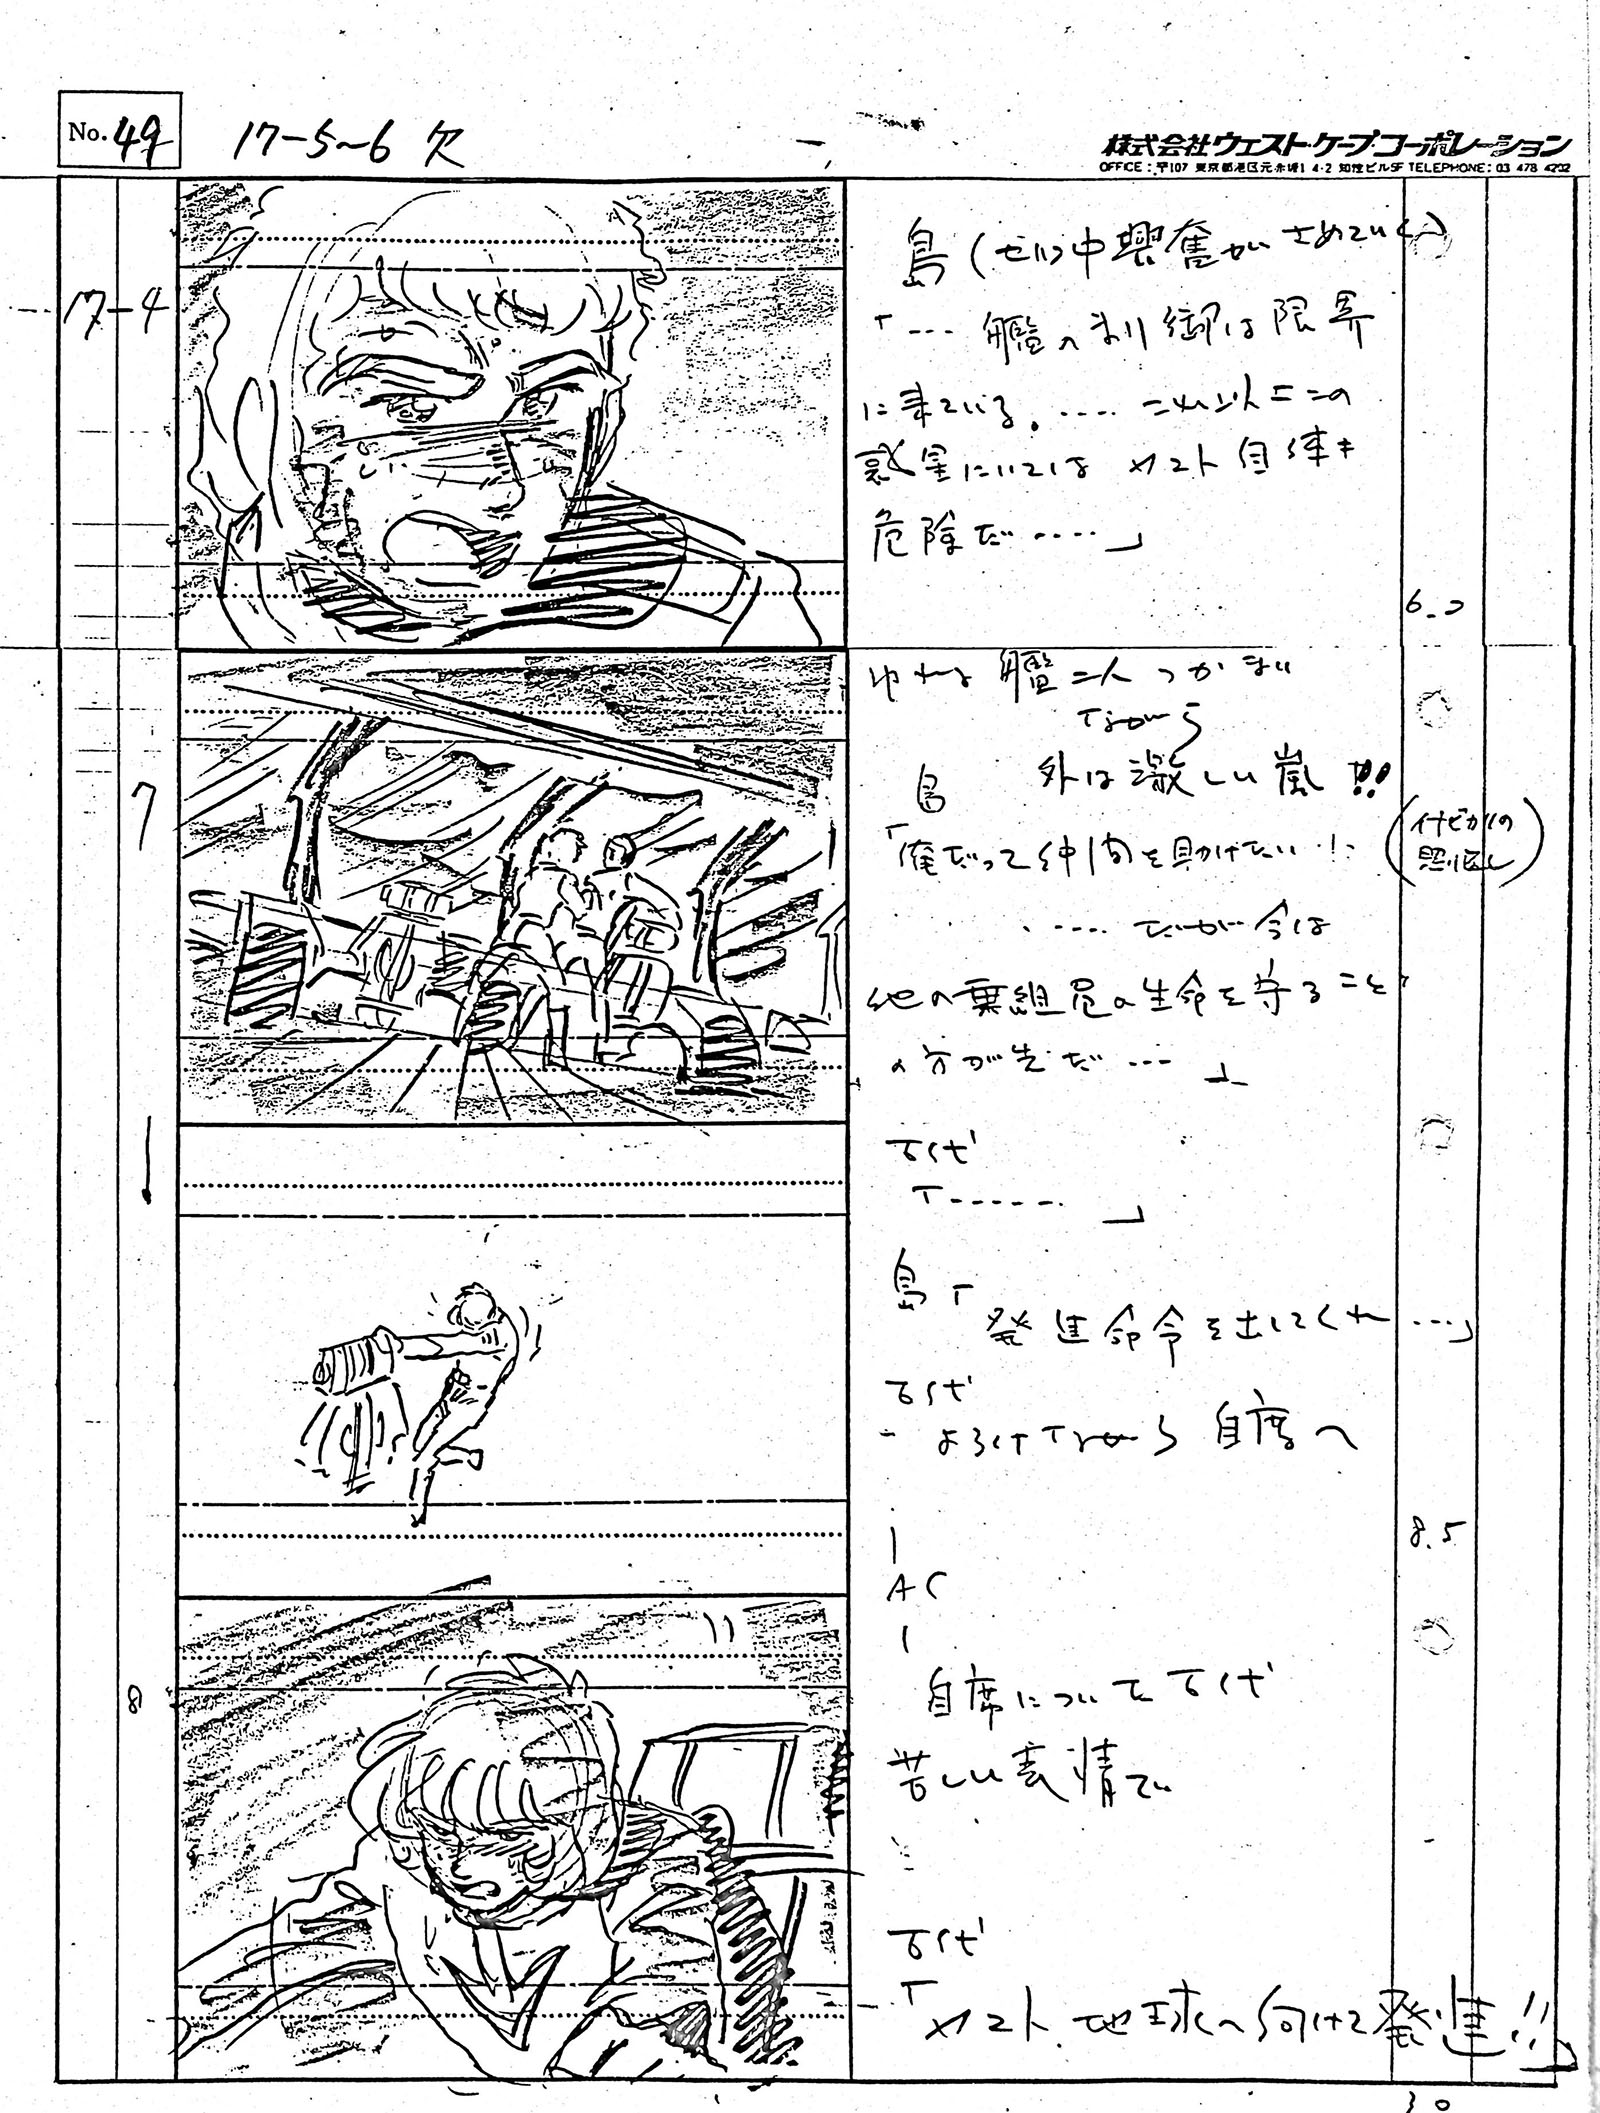 No. 49
17-5~6 欠
株式会社ウエスト・ケープ・コーポレーション
OFFICE:〒107 東京都港区元赤坂1 4-2 知性ビル5F TELEPHONE:03 478 4202
17-4
島(セリフ中興奮がさめていく)
「…艦の制御は限界
に来ている。……これ以上この
惑星にいては ヤマト自体も
危険だ……」
6.0
7
ゆれる艦 二人つかまり
ながら
外は激しい嵐!!
島
(イナビカリの
照り返し)
「俺だって仲間を助けたい!
……だが今は
他の乗組員の生命を守ること
の方が先だ…」
古代
「……」
島「
発進命令を出してくれ…」
古代
よろけながら自席へ
8.5
AC
8
自席についた古代
苦しい表情で
古代
「ヤマト 地球へ向けて発進!!」
3.0